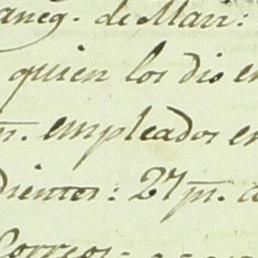 aneg. de Marr:
quien los dio en
n. empleados en
dientes: 27 m. a
Correos: